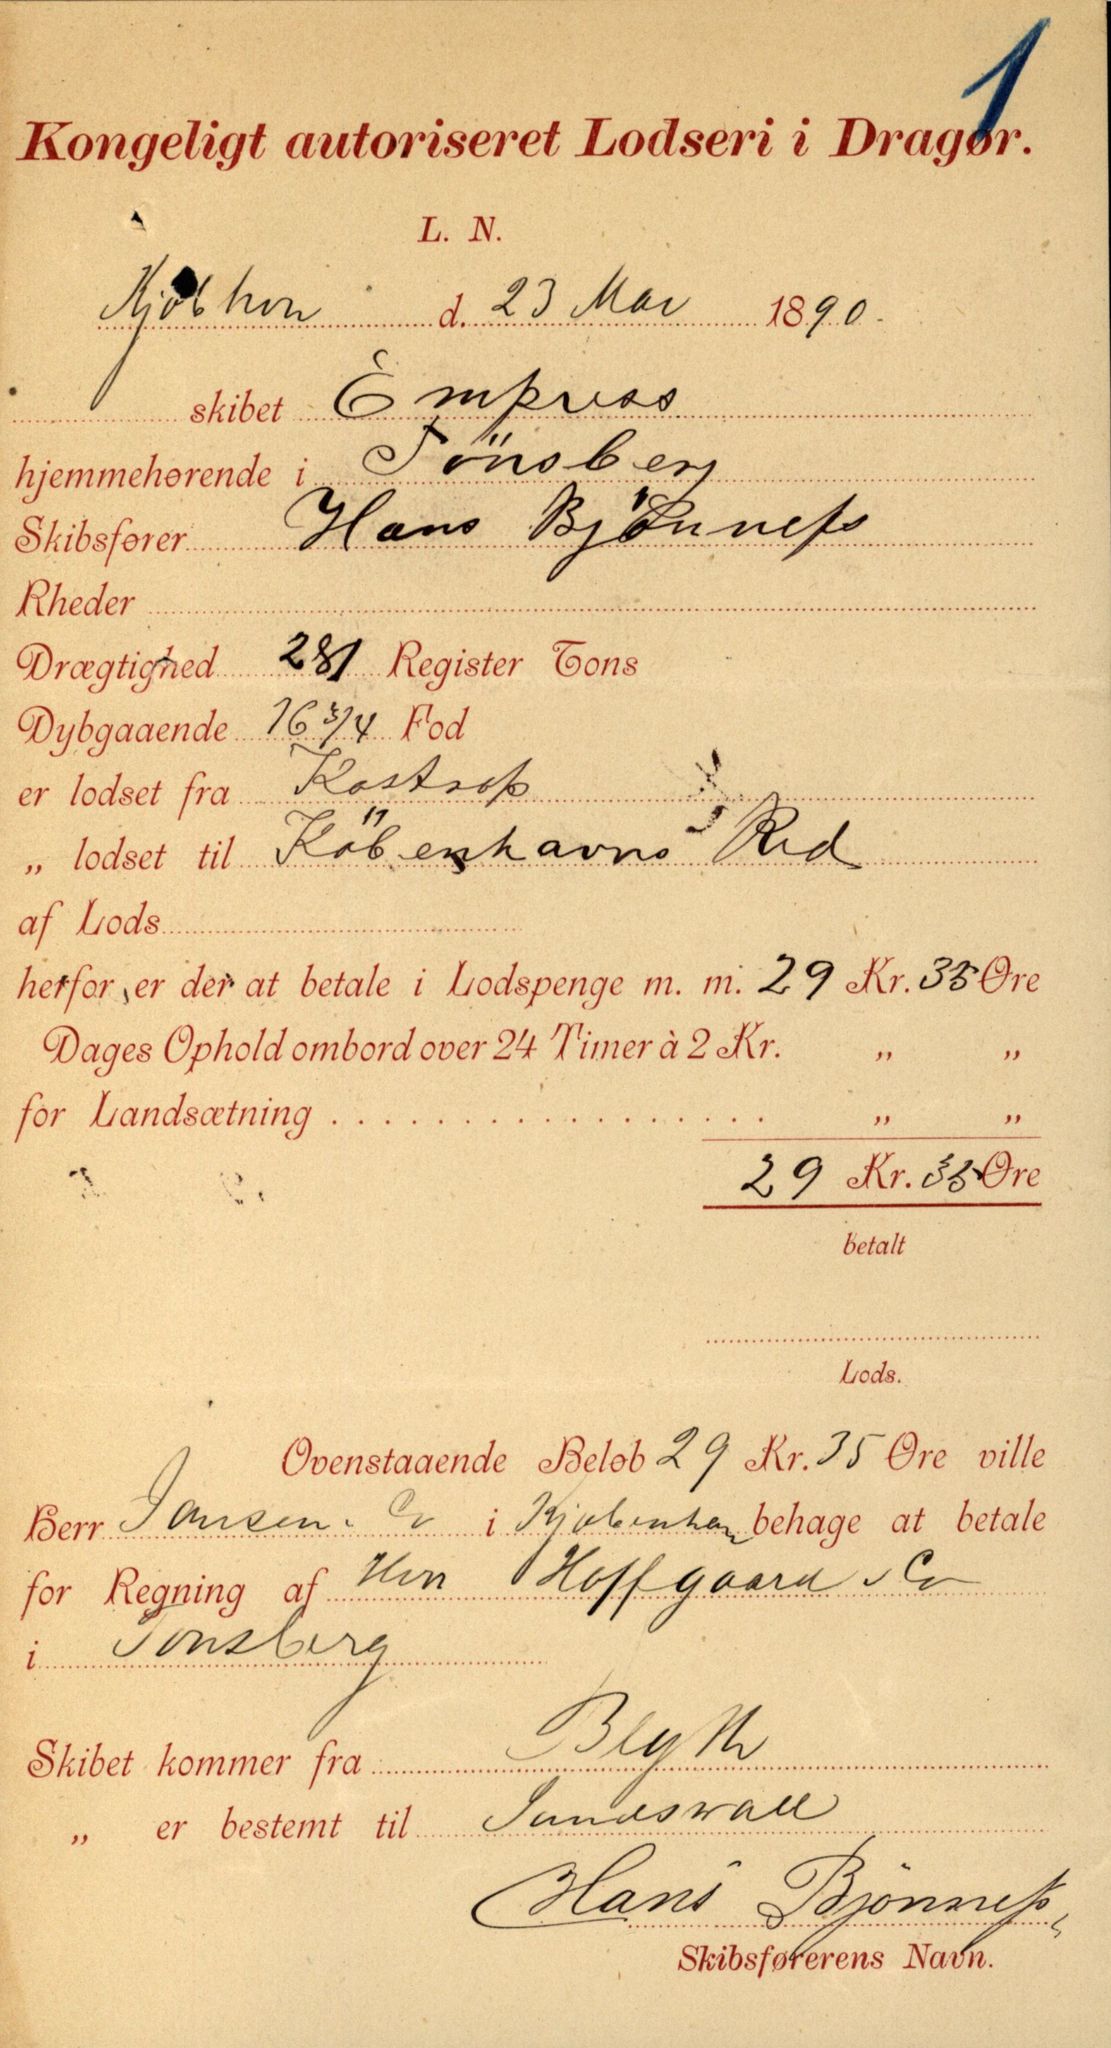 1
Kongeligt autoriseret Lodseri i Dragør.
L. N.
Kjøbhvn d. 23 Mai 1890.
skibet Empress
hjemmehørende i Tönsberg
Skibsfører Hans Bjönness
Rheder
Drægtighed 281 Register Tons
Dybgaaende 16 3/4 Fod
er lodset fra Kastrop
„ lodset til Köbenhavns Red
af Lods
herfor er der at betale i Lodspenge m. m. 29 Kr. 35 Øre
Dages Ophold ombord over 24 Timer à 2 Kr. „ „
for Landsætning . . . . . . . . . . . . . . . . . „ „
29 Kr. 35 Øre
betalt
Lods.
Ovenstaaende Beløb 29 Kr. 35 Øre ville
Herr Jansen & Co i Kjøbenhavn behage at betale
for Regning af Hoffgaard & Co
i Tonsberg
Skibet kommer fra Blyth
„ er bestemt til Sundswall
Hans Bjönness
Skibsførerens Navn.